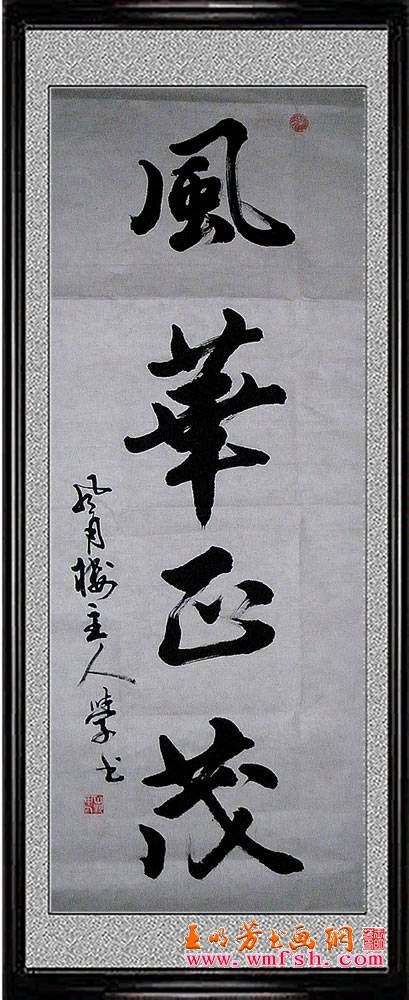 風華正茂
風月樓主人學书
王明芳书画網
www.wmfsh.com